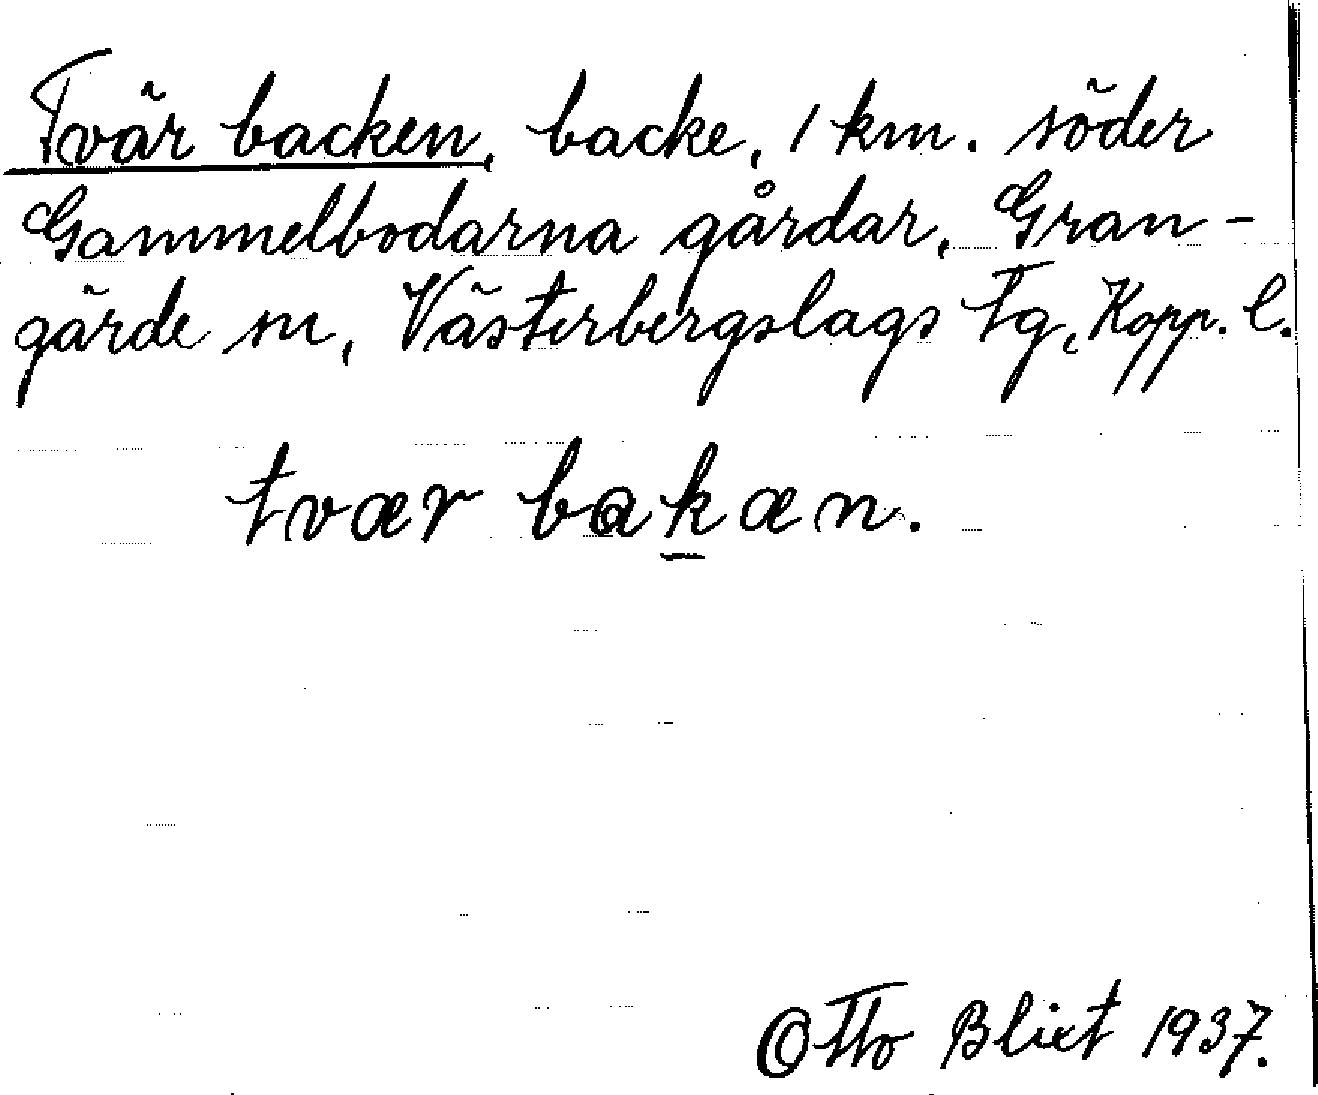 Tvär backen, backe, 1 km. söder
Gammelbodarna gårdar, Gran-
gärde sn, Västerbergslags Fg, Kopp. l.
tvær bakæn.
Otto Blixt 1937.